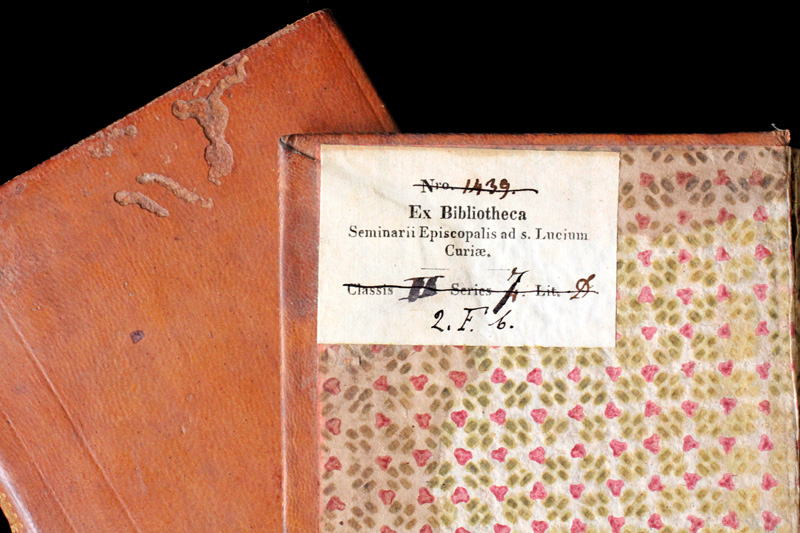 Nro. 1439.
Ex Bibliotheca
Seminarii Episcopalis ad s. Lucium
Curiæ.
Classis II Series 7. Lit. D
2. F. 6.